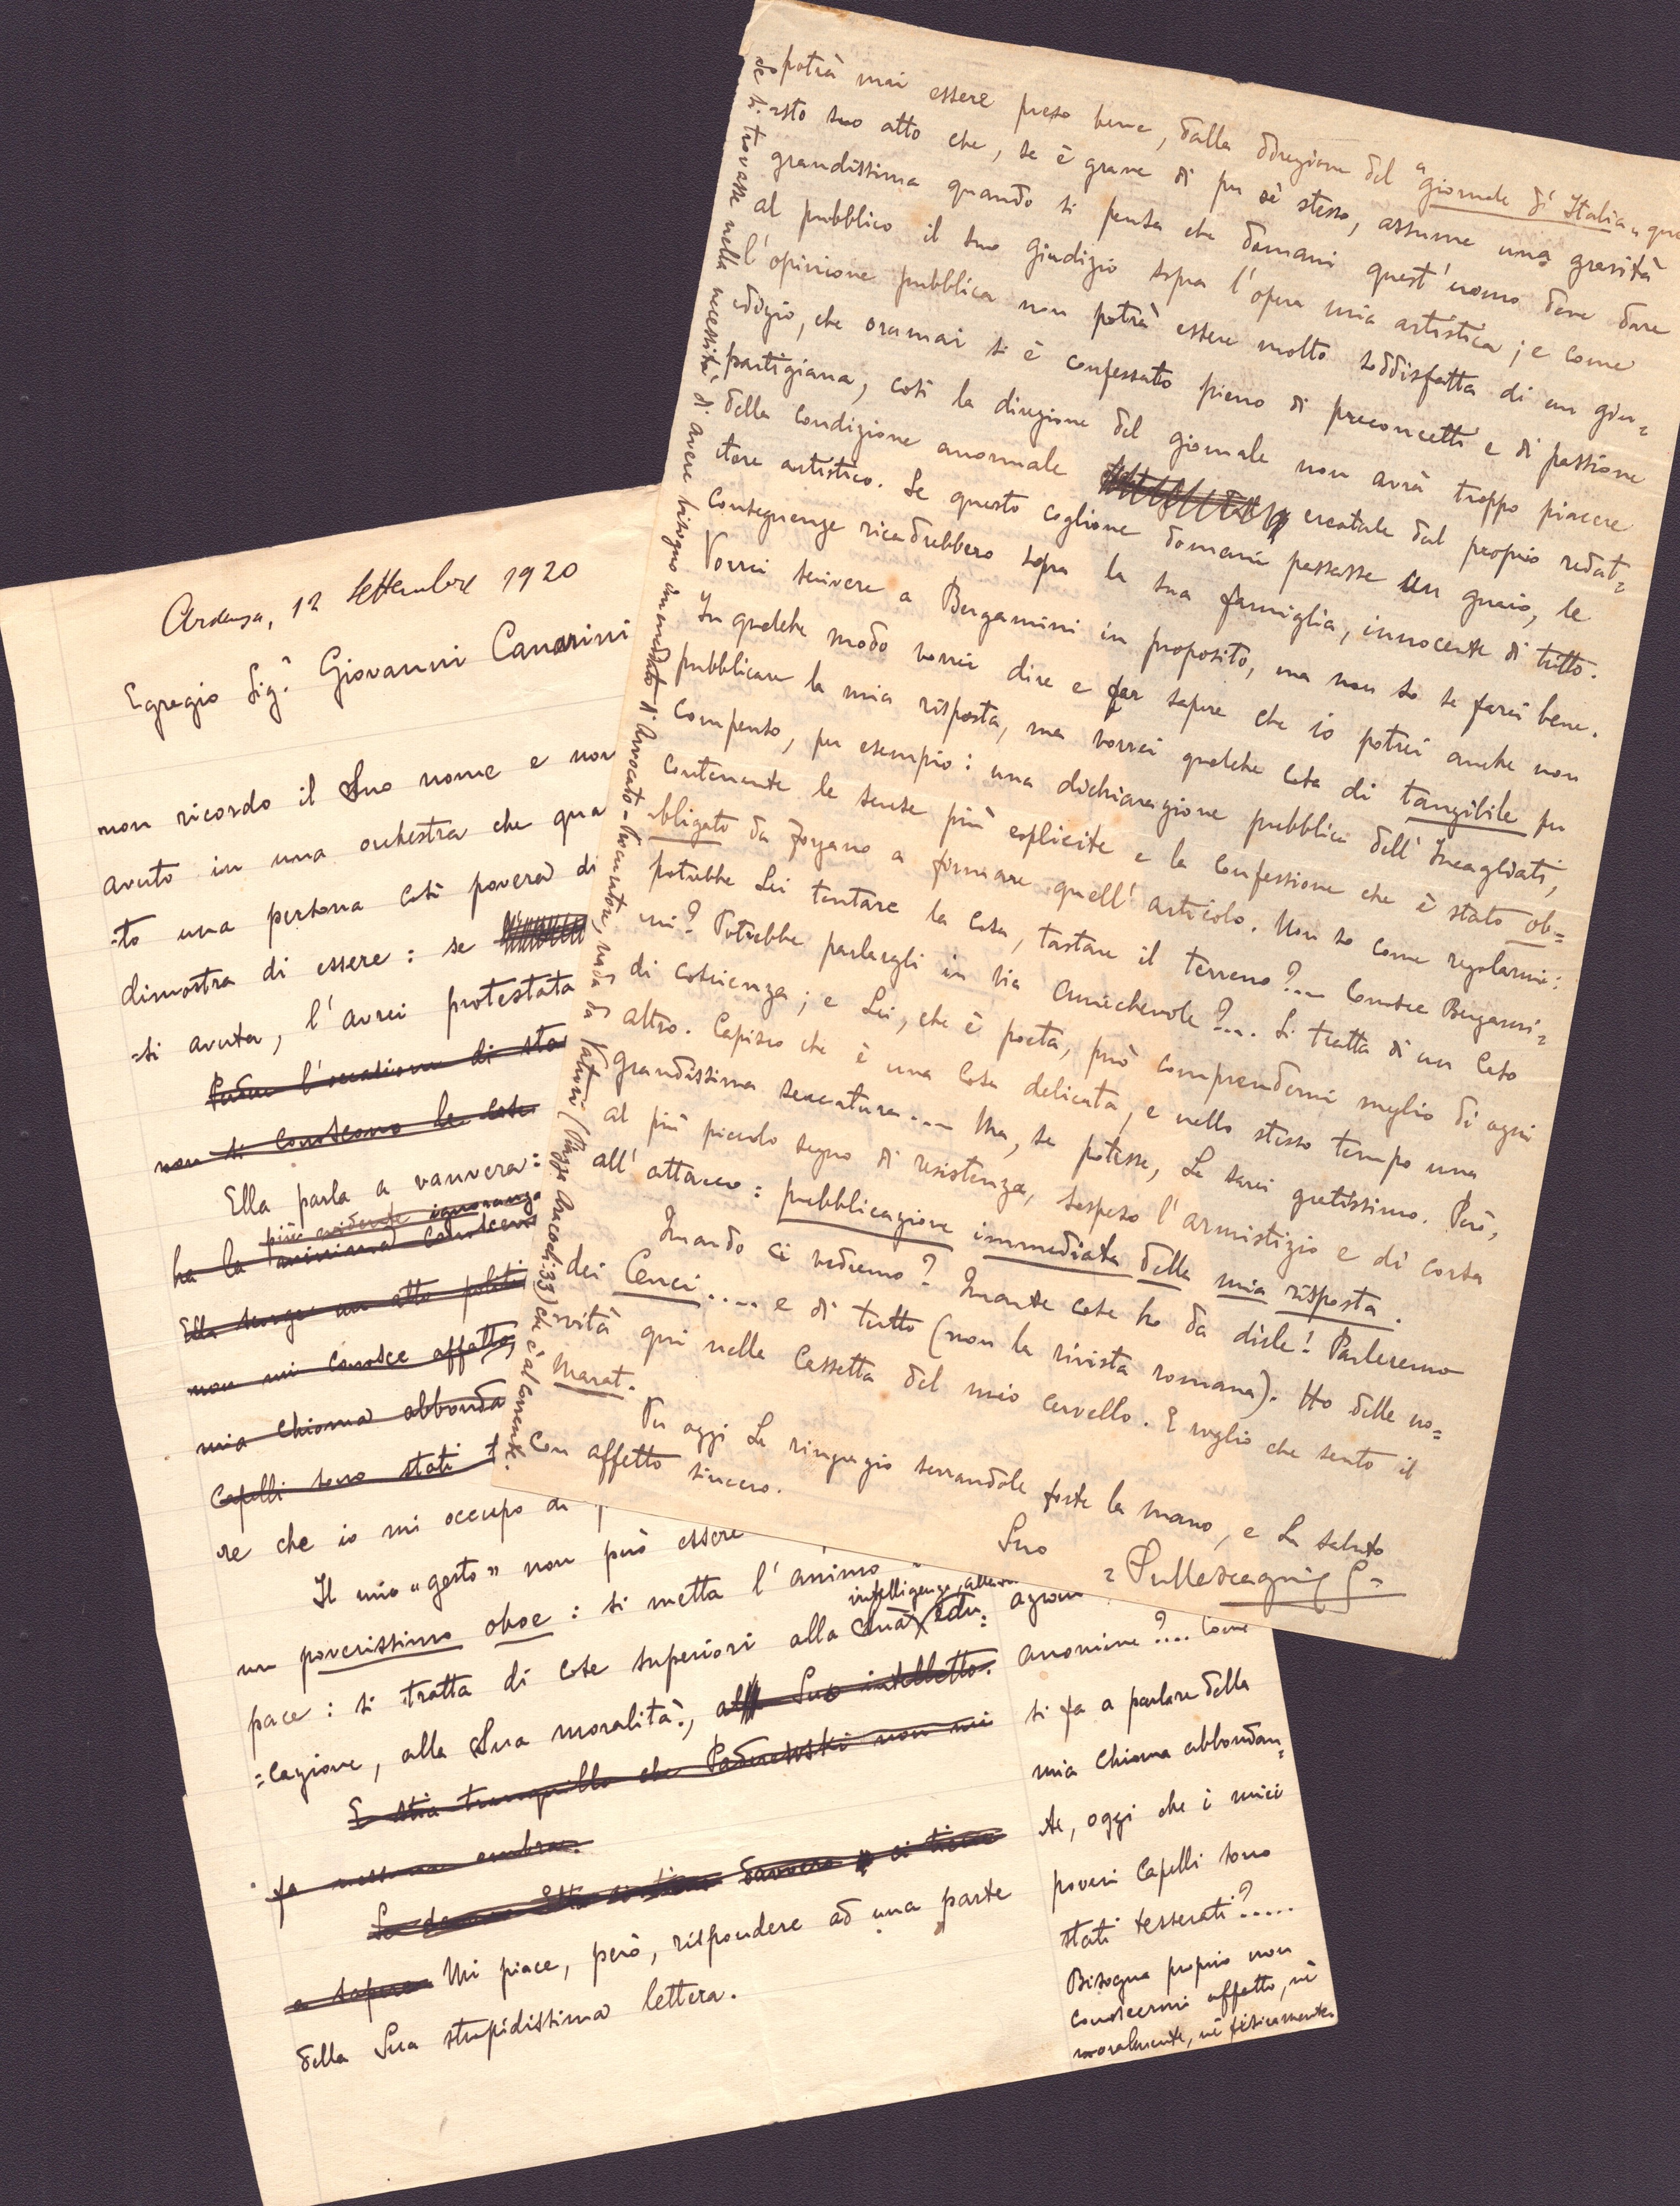 potrà mai essere preso bene, dalla direzione del "Giornale d'Italia" que
=sto suo atto che, se è grave di per sè stesso, assume una gravità
grandissima quando si pensa che domani quest'uomo deve dare
al pubblico il suo giudizio sopra l'opera mia artistica; e come
l'opinione pubblica non potrà essere molto soddisfatta di un giu=
dizio, che oramai si è confessato pieno di preconcetti e di passione
partigiana, così la direzione del giornale non avrà troppo piacere
della condizione anormale creatale dal proprio redat=
tore artistico. Se questo coglione domani passasse un guaio, le
conseguenze ricadrebbero sopra la sua famiglia, innocente di tutto.
Vorrei scrivere a Bergamini in proposito, ma non so se farei bene.
In qualche modo vorrei dire e far sapere che io potrei anche non
pubblicare la mia risposta, ma vorrei qualche cosa di tangibile per
compenso, per esempio: una dichiarazione pubblica dell'Incagliati,
contenente le scuse più esplicite e la confessione che è stato ob=
bligato da Forzano a firmare quell'articolo. Non so come regolarmi:
potrebbe Lei tentare la cosa, tastare il terreno?... Conosce Bergami=
ni? Potrebbe parlargli in via amichevole?... Si tratta di un caso
di coscienza; e Lei, che è poeta, può comprendermi meglio di ogni
altro. Capisco che è una cosa delicata, e nello stesso tempo una
grandissima seccatura... Ma, se potesse, Le sarei gratissimo. Però,
al più piccolo segno di resistenza, sospeso l'armistizio e di corsa
all'attacco: pubblicazione immediata della mia risposta.
Quando ci vedremo? Quante cose ho da dirle! Parleremo
dei Cenci.... e di tutto (non la rivista romana). Ho delle no=
vità qui nella cassetta del mio cervello. E voglio che senta il
Marat.
Per oggi La ringrazio serrandole forte la mano, e La saluto
con affetto sincero.
Suo
se si trovasse nella necessità di avere bisogno immediato di Avvocato-Procuratore, vada da (Piazza 33) che è al corrente.
Ardenza, 12 settembre 1920
Egregio Sig.r Giovanni Canarini
non ricordo il Suo nome e non
avuto in una orchestra che qua
=to una persona così povera di
dimostra di essere: se
=si avuta, l'avrei protestata
l'occasione di sta
non si conoscono le cose
Ella parla a vanvera:
più evidente ignoranza
ha la
Ella scorge un atto politi
non mi conosce affatto,
mia chioma abbonda
capelli sono stati t
re che io mi occupo di p
Il mio "gesto" non può essere
un poverissimo oboe: si metta l'animo
pace: si tratta di cose superiori alla Sua edu=
intelligenza, alla
=cazione, alla Sua moralità, Suo intelletto.
E stia tranquillo che Paderewski non mi
fa nessuna ombra.
davvero ci tiene
a sapere Mi piace, però, rispondere ad una parte
della Sua stupidissima lettera.
anonime?.... Come
si fa a parlare della
mia chioma abbondan=
te, oggi che i miei
poveri capelli sono
stati tesserati?.....
Bisogna proprio non
conoscermi affatto, nè
moralmente, nè fisicamente